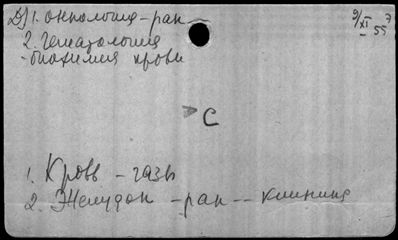 Д) 1. онкология - рак
9/XI - 55
2. гематология
- биохимия крови
> С
1. Кровь - газы
2. Желудок - рак -- клиника